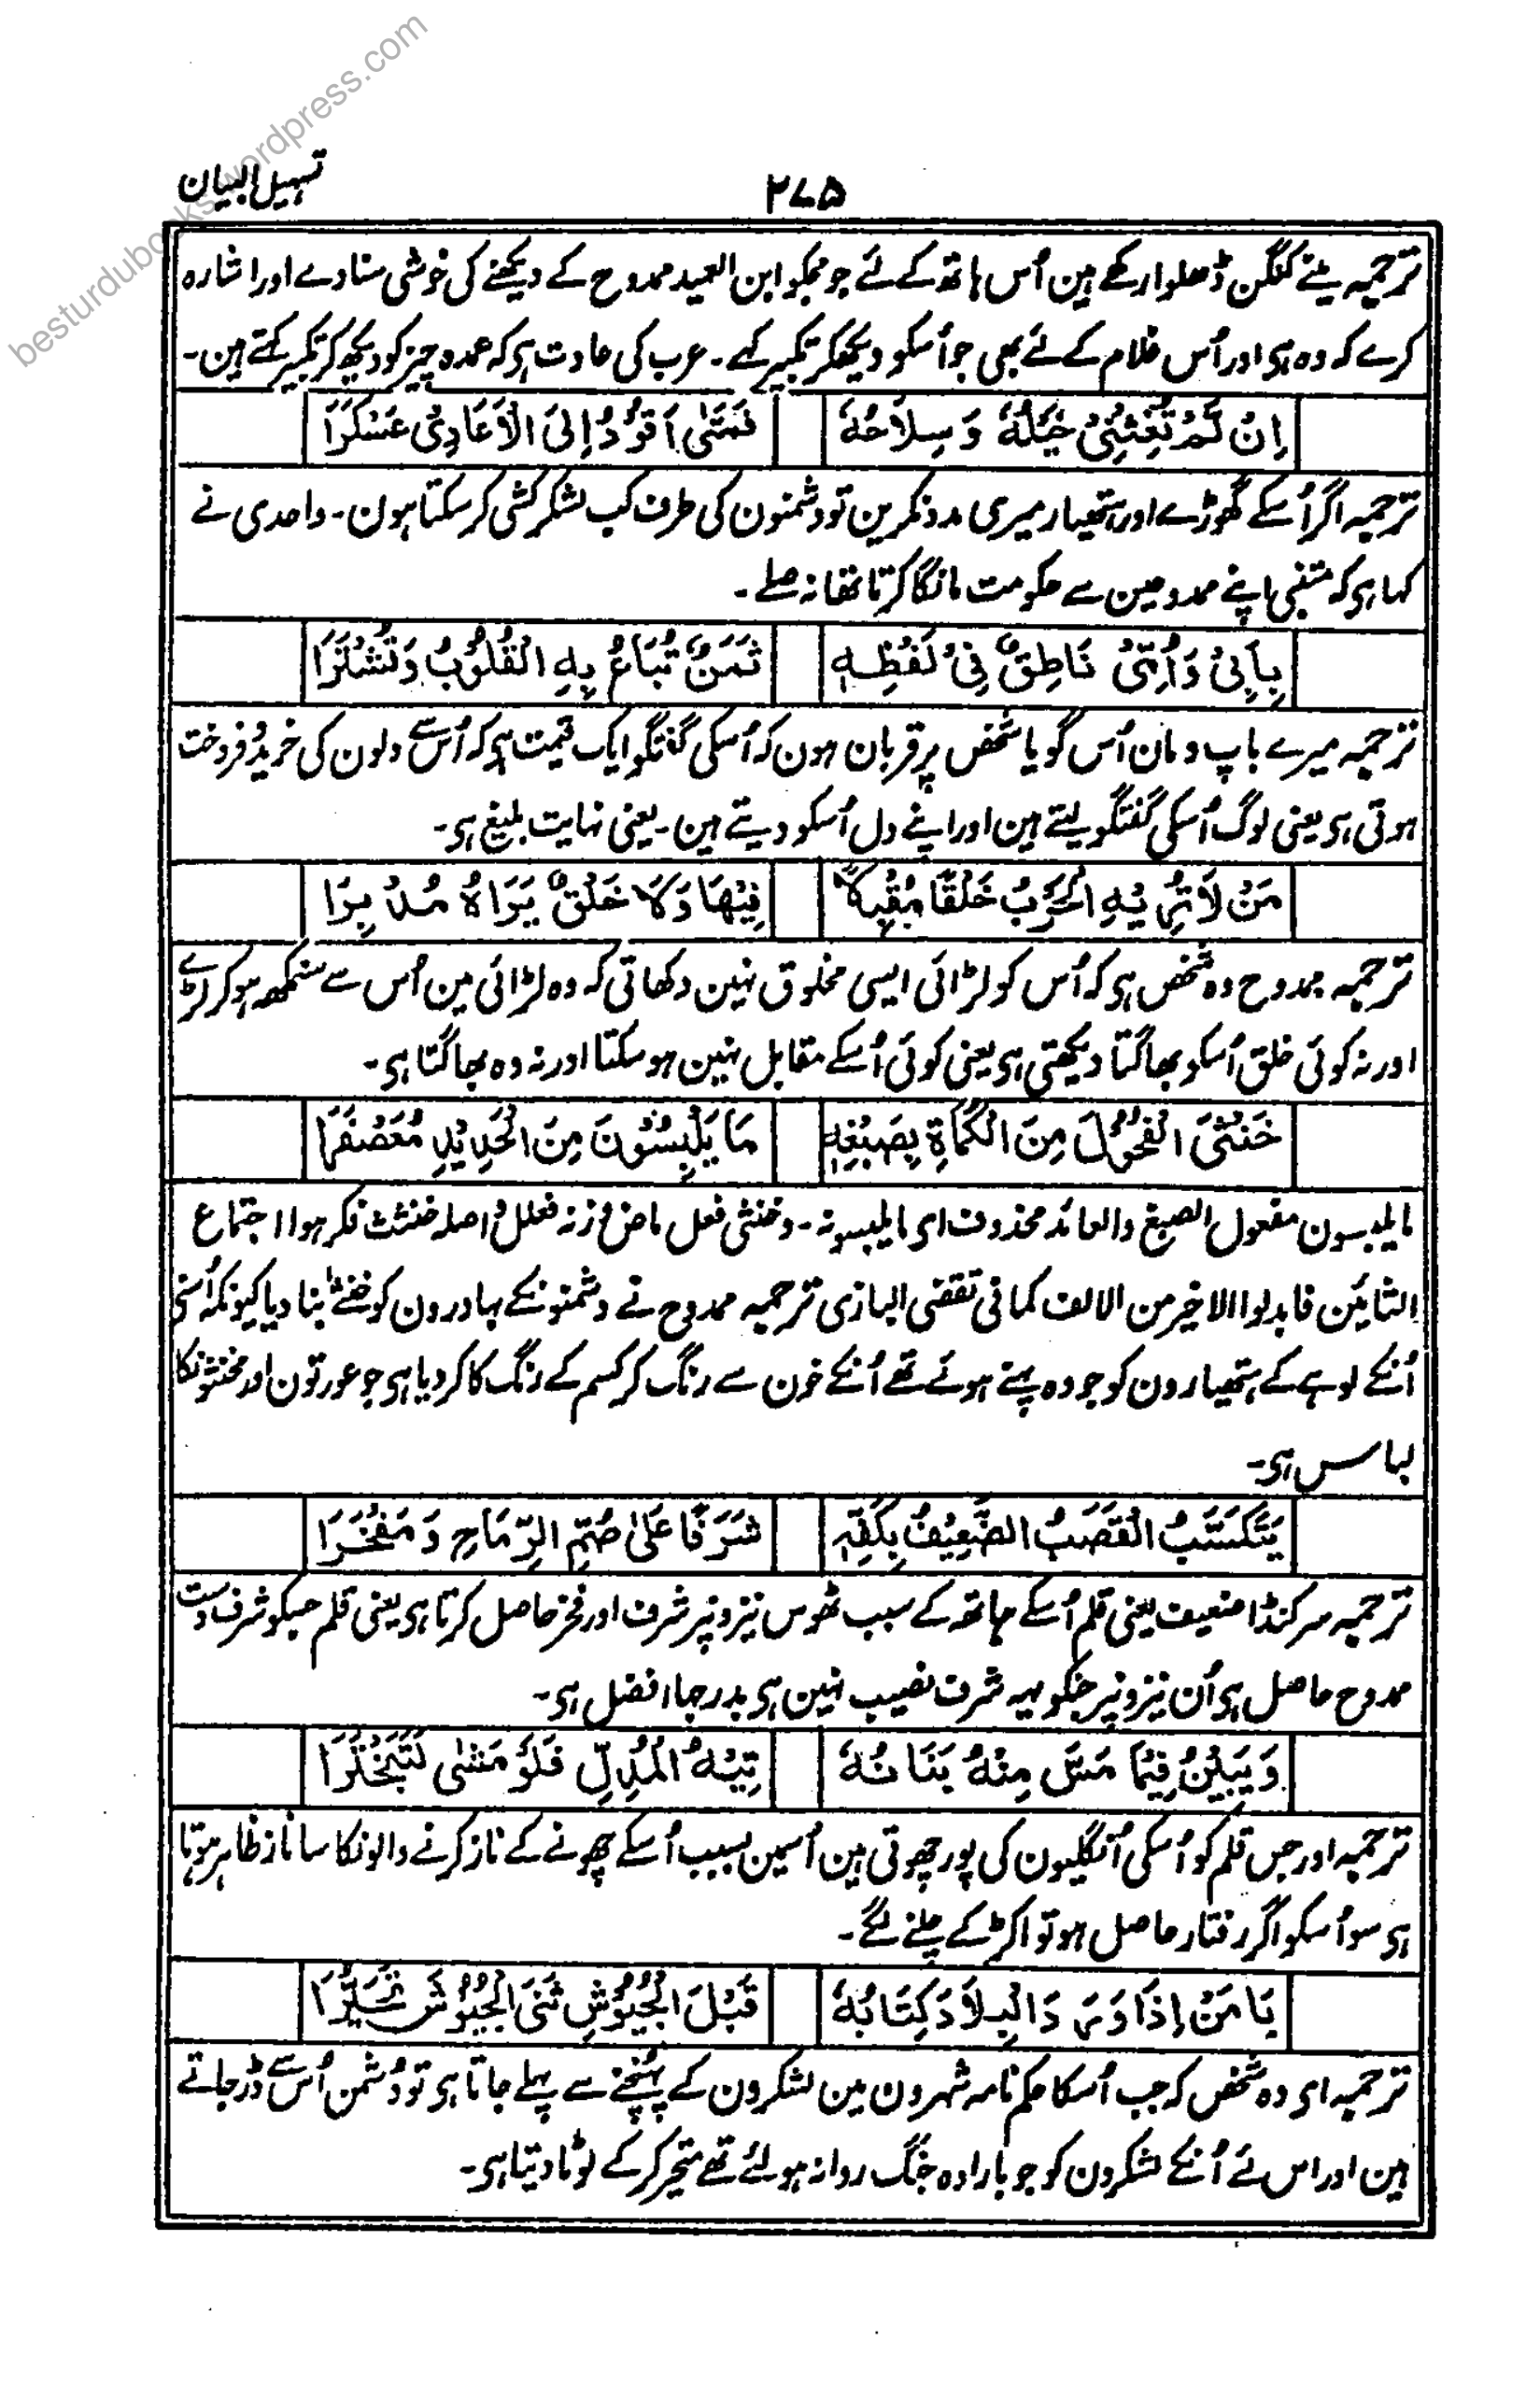 besturdubooks.wordpress.com
تسہیل البیان
۲۷۵
ترجمہ مینے کنگن ڈھلوا رکھے ہین اُس ہاتھ کے لئے جو مجکو ابن العمید ممدوح کے دیکھنے کی خوشی سنادے اور اشارہ
کرے کہ وہ ہی اور اُس غلام کے لئے بھی جو اُسکو دیکھکر تکبیر کہے ۔ عرب کی عادت ہی کہ عمدہ چیز کو دیکھ کر تکبیر کہتے ہین ۔
اِنْ لَمْ تُغِثْنِیْ خَیْلُهٗ وَسِلَاحُهٗ فَمَتٰی اَقُوْدُ اِلَی الْاَعَادِیْ عَسْکَرَا
ترجمہ اگر اُسکے گھوڑے اور ہتھیار میری مدد نکرین تو دشمنون کی طرف کب لشکر کشی کر سکتا ہون ۔ واحدی نے
کہا ہی کہ متنبی اپنے ممدوحین سے حکومت مانگا کرتا تھا نہ صلے ۔
بِاَبِیْ وَاُمِّیْ نَاطِقٌ فِیْ لَفْظِهٖ ثَمَنٌ تُبَاعُ بِهِ الْقُلُوْبُ وَتُشْتَرَا
ترجمہ میرے باپ و مان اُس گویا شخص پر قربان ہون کہ اُسکی گفتگو ایک قیمت ہی کہ اُس سے دلون کی خرید و فروخت
ہوتی ہی یعنی لوگ اُسکی گفتگو لیتے ہین اور اپنے دل اُسکو دیتے ہین ۔ یعنی نہایت بلیغ ہی ۔
مَنْ لَا تُرِیْهِ الْحَرْبُ خَلْقًا مُقْبِلًا فِیْهَا وَلَا خَلْقٌ یَرَاهُ مُدْبِرَا
ترجمہ ممدوح وہ شخص ہی کہ اُس کو لڑائی ایسی مخلوق نہین دکھاتی کہ وہ لڑائی مین اُس سے سنمکھ ہو کر لڑے
اور نہ کوئی خلق اُسکو بھاگتا دیکھتی ہی یعنی کوئی اُسکے مقابل نہین ہو سکتا اور نہ وہ بھاگتا ہی ۔
خَنْثَی الْفُحُوْلَ مِنَ الْکُمَاةِ بِصَبْغِهٖ مَا یَلْبِسُوْنَ مِنَ الْحَدِیْدِ مُعَصْفَرَا
مایلبسون مفعول الصبغ والعائد محذوف ای مایلبسونہ ۔ وخنثی فعل ماض وزنہ فعلل و اصلہ خنثث فکرہوا اجتماع
الثائین فابدلوا الاخیر من الالف کما فی تقضی البازی ترجمہ ممدوح نے دشمنونکے بہادرون کو خنثٰی بنا دیا کیونکہ اُسنے
اُنکے لوہے کے ہتھیارون کو جو وہ پہنے ہوئے تھے اُنکے خون سے رنگ کر کسم کے رنگ کا کر دیا ہی جو عورتون اور مخنثونکا
لباس ہی ۔
یَتَکَسَّبُ الْقَصَبُ الضَّعِیْفُ بِکَفِّهٖ شَرَفًا عَلٰی صُمِّ الرِّمَاحِ وَمَفْخَرَا
ترجمہ سرکنڈا ضعیف یعنی قلم اُسکے ہاتھ کے سبب ٹھوس نیزونپر شرف اور فخر حاصل کرتا ہی یعنی قلم جسکو شرف دست
ممدوح حاصل ہی اُن نیزونپر جنکو یہ شرف نصیب نہین ہی بدرجہا افضل ہی ۔
وَیَبِیْنُ فِیْمَا مَسَّ مِنْهُ بَنَانُهٗ تِیْهُ الْمُدِلِّ فَلَوْ مَشٰی لَتَبَخْتَرَا
ترجمہ اور جس قلم کو اُسکی اُنگلیون کی پور چھوتی ہین اُسمین بسبب اُسکے چھونے کے ناز کرنے والونکا سا ناز ظاہر ہوتا
ہی سو اُسکو اگر رفتار حاصل ہو تو اکڑ کے چلنے لگے ۔
یَا مَنْ اِذَا وَرَدَ الْبِلَادَ کِتَابُهٗ قَبْلَ الْجُیُوْشِ ثَنَی الْجُیُوْشَ تَحَیُّرَا
ترجمہ ای وہ شخص کہ جب اُسکا حکم نامہ شہرون مین لشکرون کے پہنچنے سے پہلے جاتا ہی تو دُشمن اُس سے ڈر جاتے
ہین اور اس لئے اُنکے لشکرون کو جو بارادہ جنگ روانہ ہوئے تھے متحیر کر کے لوٹا دیتا ہی ۔